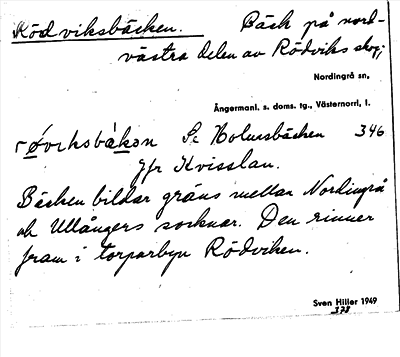 Rödviksbäcken. Bäck på nord-
västra delen av Rödviks skog;
Nordingrå sn,
Ångermanl. s. doms. tg., Västernorrl. l.
Se Holmsbäcken 346
Jfr Kvisslan.
Bäcken bildar gräns mellan Nordingrå
och Ullångers socknar. Den rinner
fram i torparbyn Rödviken.
Sven Hiller 1949
378